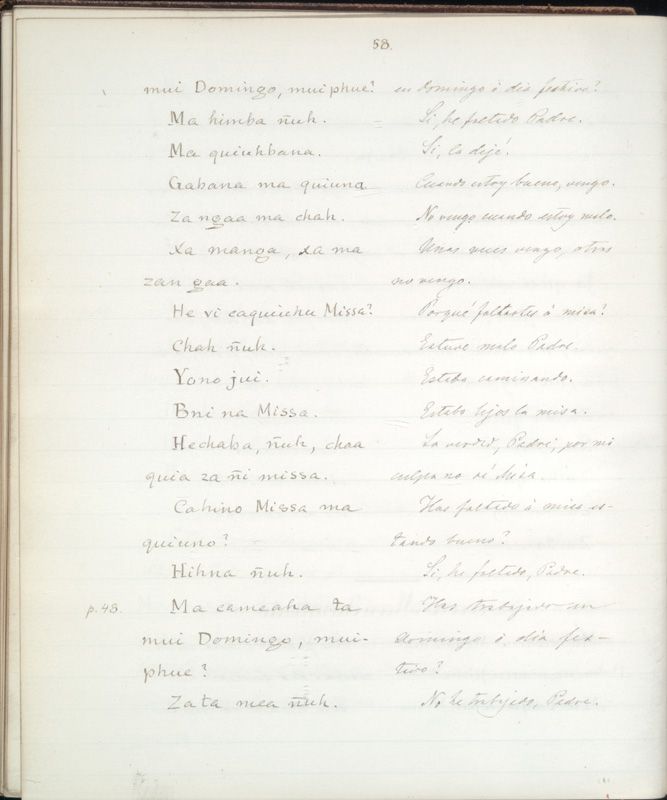 58.
mui Domingo, mui phue? en domingo ó dia festivo?
Ma himba ñuh. Si, he faltado Padre.
Ma quiuhbana. Si, la dejé.
Gabana ma quiuna Cuando estoy bueno, vengo.
Za ngaa ma chah. No vengo cuando estoy malo.
Xa manga, xa ma Unas veces vengo, otras
zan gaa. no vengo.
He vi caquiuhu Missa? Porqué faltastes á misa?
Chah ñuh. Estuve malo Padre.
Yano jui. Estaba caminando.
Bni na Missa. Estaba lejos la misa.
Hechaba, ñuh, chaa La verdad, Padre, por mi
quia za ñi missa. culpa no ví Misa.
Cahino Missa ma Has faltado á misa es-
quiuno? tando bueno?
Hihna ñuh. Si, he faltado, Padre.
p. 48. Ma cameaha ta Has trabajado un
mui Domingo, mui- domingo ó dia fes-
phue? tivo?
Zata mea ñuh. No he trabajado, Padre.